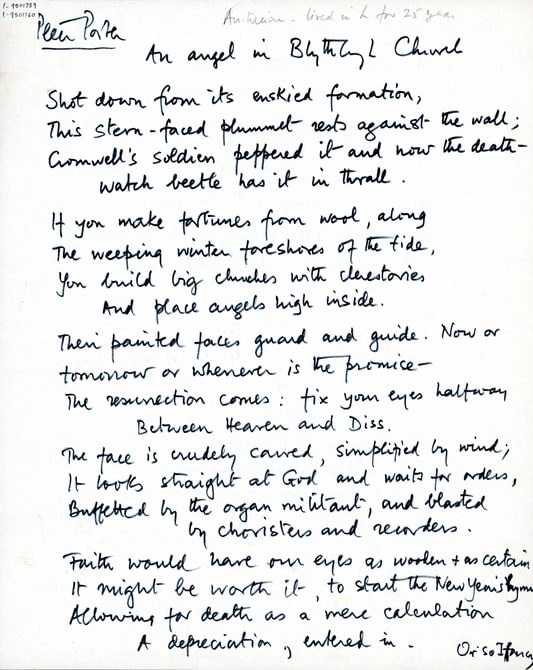 1-9501759
1-9501760
Peter Porter
Australian - lived in L for 25 years
An angel in Blythburgh Church
Shot down from its enskied formation,
This stern-faced plummet rests against the wall;
Cromwell's soldiers peppered it and now the death-
watch beetle has it in thrall.
If you make fortunes from wool, along
The weeping winter foreshores of the tide,
You build big churches with clerestories
And place angels high inside.
Their painted faces guard and guide. Now or
tomorrow or whenever is the promise-
The resurrection comes: fix your eyes halfway
Between Heaven and Diss.
The face is crudely carved, simplified by wind;
It looks straight at God and waits for orders,
Buffetted by the organ militant, and blasted
by choristers and recorders.
Faith would have our eyes as wooden + as certain
It might be worth it, to start the New Year's hymn
Allowing for death as a mere calculation
A depreciation, entered in.
Or so I fancy